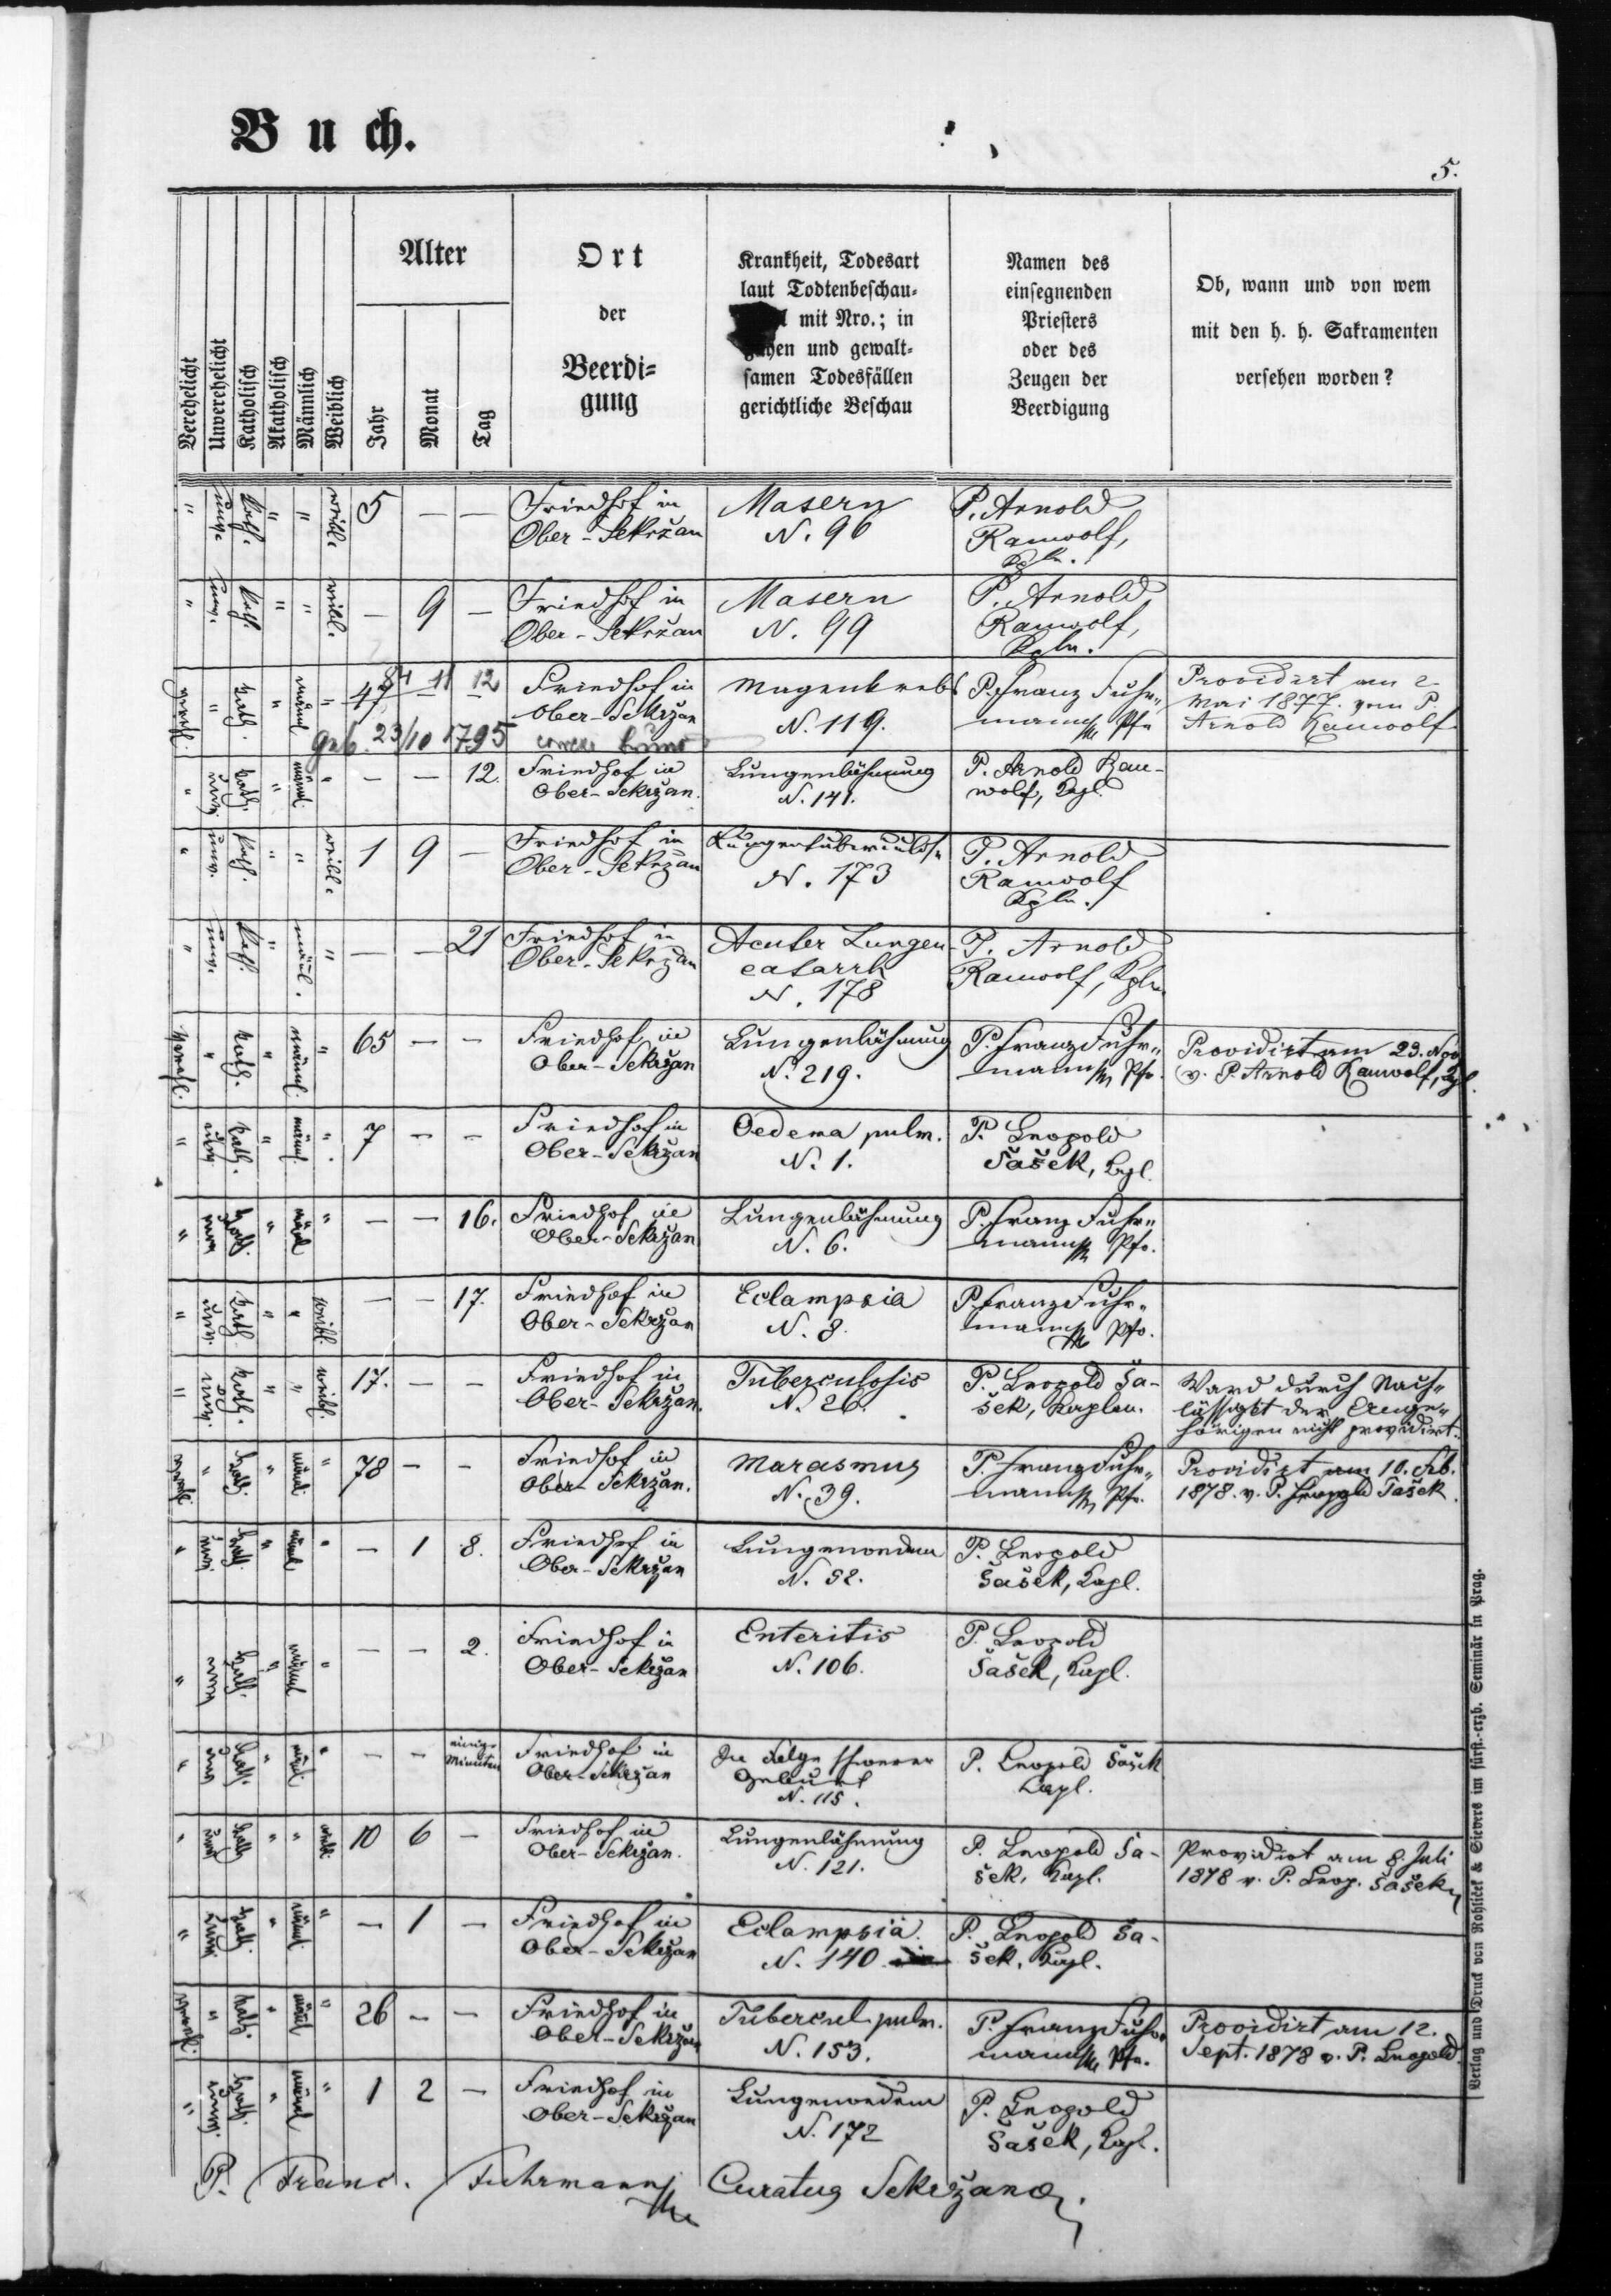 Buch.
5.
Verehelicht
Unverehelicht
Katholisch
Akatholisch
Männlich
Weiblich
Alter
Jahr
Monat
Tag
Ort
der
Beerdi-
gung
Krankheit, Todesart
laut Todtenbeschau-
mit Nro.; in
und gewalt-
samen Todesfällen
gerichtliche Beschau
Namen des
einsegnenden
Priesters
oder des
Zeugen der
Beerdigung
Ob, wann und von wem
mit den h. h. Sakramenten
versehen worden?
" unv. kath. " " weibl. 5 — — Friedhof in Ober-Sekržan Masern N. 96 P. Arnold Rauwolf, Kpln.
" unv. kath. " " weibl. — 9 — Friedhof in Ober-Sekržan Masern N. 99 P. Arnold Rauwolf, Kpln.
verehl. " kath. " männl. " 47 84 11 12 Friedhof in Ober-Sekržan Magenkrebs N. 119. P. Franz Fuhr- mann Pfr. Providirt am 2 Mai 1877. vom P. Arnold Rauwolf
geb. 23/10 1795
" unv. kath. " männl. " — — 12. Friedhof in Ober-Sekržan. Lungenlähmung N. 141. P. Arnold Rau- wolf, Kpl.
" unv. kath. " " weibl. 1 9 — Friedhof in Ober-Sekržan Lungentuberculos. N. 173 P. Arnold Rauwolf Kpln.
" unv. kath. " männl. " — — 21 Friedhof in Ober-Sekržan Acuter Lungen- catarrh N. 178 P. Arnold Rauwolf, Kpln.
verehl. " kath. " männl. " 65 — — Friedhof in Ober-Sekržan Lungenlähmung N. 219. P. Franz Fuhr- mann Pfr. Providirt am 23. Nov v. P. Arnold Rauwolf, Kpl.
" unv. kath. " männl. " 7 — — Friedhof in Ober-Sekržan Oedema pulm. N. 1. P. Leopold Šašek, Kapl.
" unv. kath. " männl. " — — 16. Friedhof in Ober-Sekržan Lungenlähmung N. 6. P. Franz Fuhr- mann Pfr.
" unv. kath. " " weibl. — — 17. Friedhof in Ober-Sekržan Eclampsia N. 8. P. Franz Fuhr- mann Pfr.
" unv. kath. " " weibl. 17. — — Friedhof in Ober-Sekržan. Tuberculosis N. 26. P. Leopold Ša- šek, Kaplan. Ward durch Nach- lässigkt der Ange- hörigen nicht providirt.
verehl. " kath. " männl. " 78 — — Friedhof in Ober-Sekržan. Marasmus N. 39. P. Franz Fuhr- mann Pfr. Providirt am 10. Feb. 1878. v. P. Leopold Šašek.
" unv. kath. " männl. " — 1 8. Friedhof in Ober-Sekržan Lungenoedem N. 52. P. Leopold Šašek, Kapl.
" unv. kath. " männl. " — — 2. Friedhof in Ober-Sekržan Enteritis N. 106. P. Leopold Šašek, Kapl.
" unv. kath. " männl. " — — einige Minuten Friedhof in Ober-Sekržan In Folge schwerer Geburt N. 115. P. Leopold Šašek Kapl.
" unv. kath. " " weibl. 10 6 — Friedhof in Ober-Sekržan. Lungenlähmung N. 121. P. Leopold Ša- šek, Kapl. Providirt am 8. Juli 1878 v. P. Leop. Šašek
" unv. kath. " männl. " — 1 — Friedhof in Ober-Sekržan Eclampsia. N. 140 P. Leopold Ša- šek, Kapl.
verehl. " kath. " männl. " 26 — — Friedhof in Ober-Sekržan Tubercul. pulm. N. 153. P. Franz Fuhr- mann Pfr. Providirt am 12. Sept. 1878 v. P. Leopold.
" unv. kath. " männl. " 1 2 — Friedhof in Ober-Sekržan Lungenoedem N. 172 P. Leopold Šašek, Kapl.
P. Franc. Fuhrmann Curatus Sekržanae.
Verlag und Druck von Rohliček & Sievers im fürst.-erzb. Seminär in Prag.